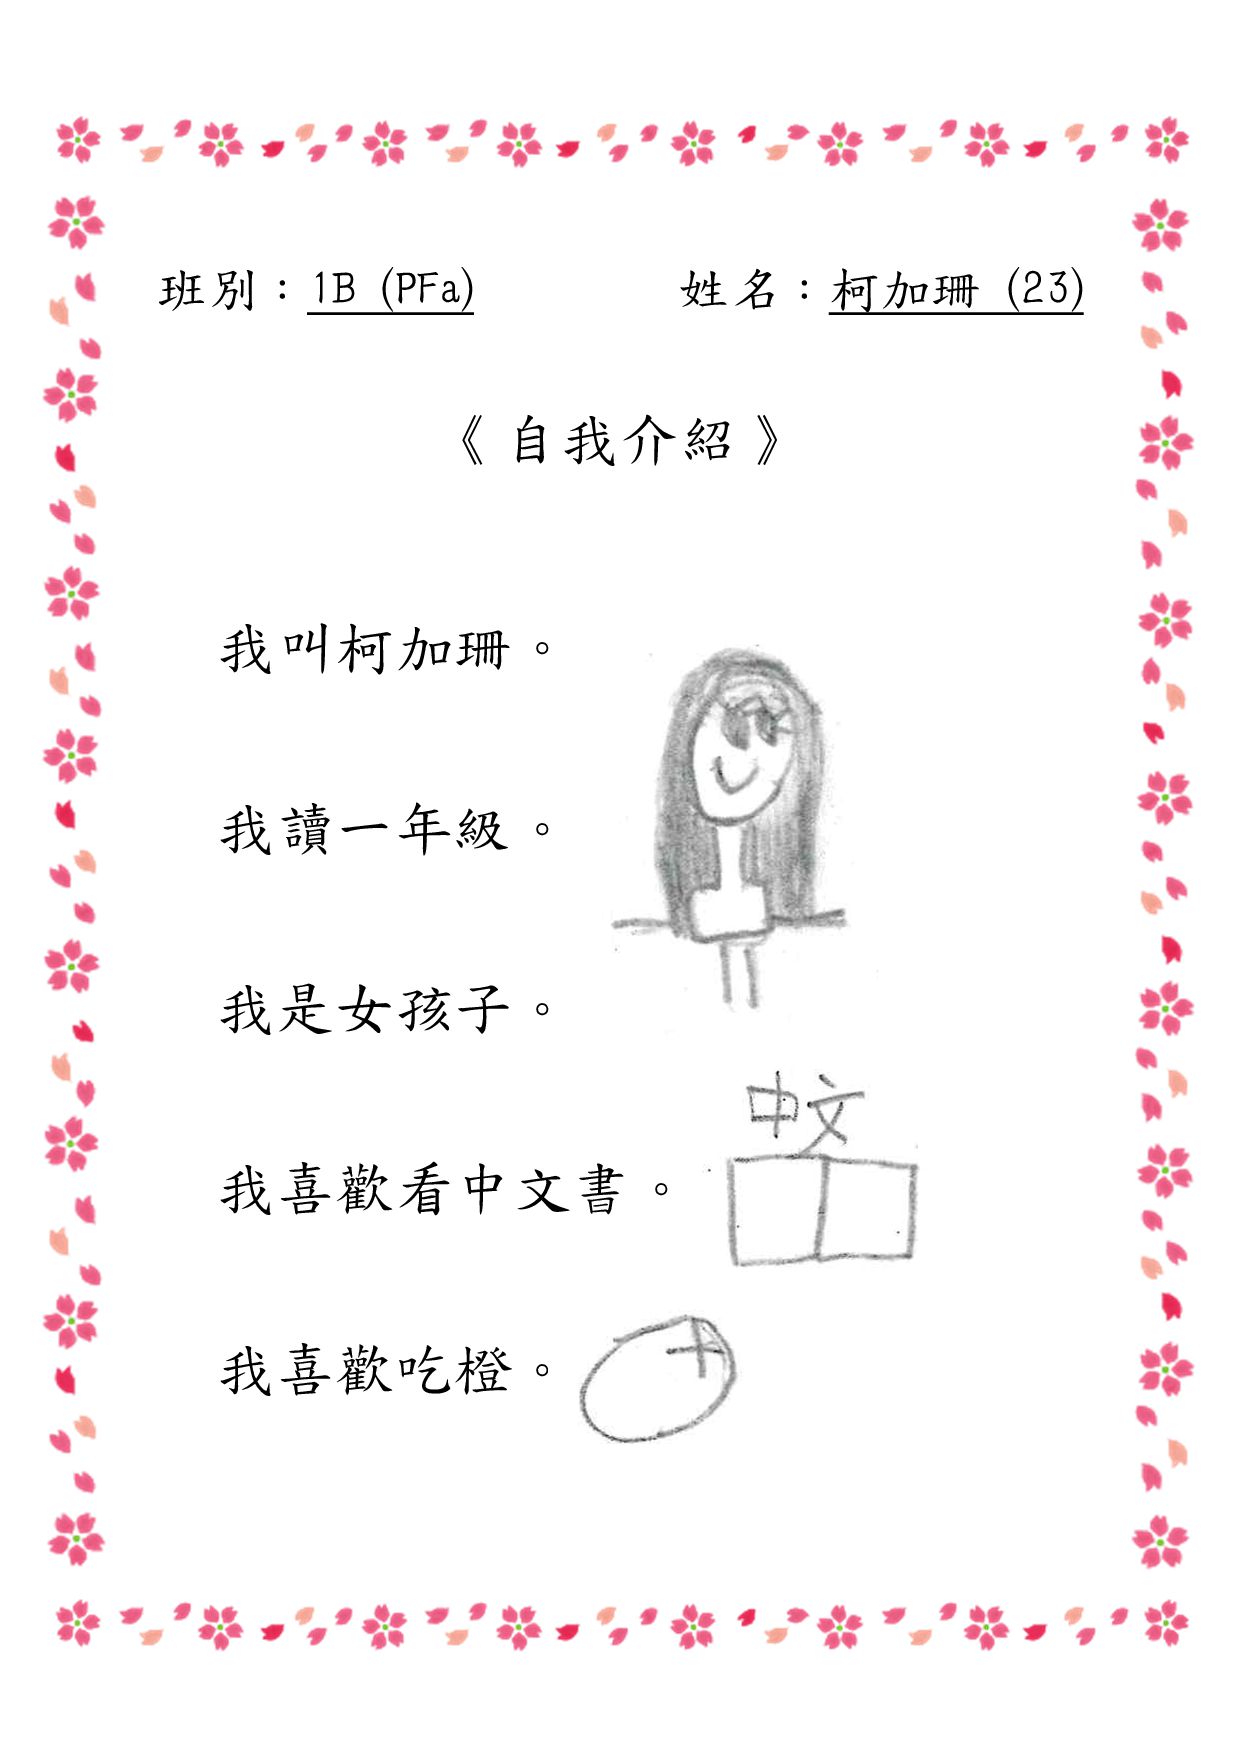 班別：1B (PFa) 姓名：柯加珊 (23)
《自我介紹》
我叫柯加珊。
我讀一年級。
我是女孩子。
中文
我喜歡看中文書。
我喜歡吃橙。